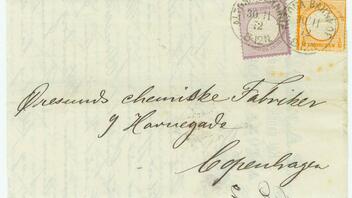 30 11
72
Øresunds chemiske Fabriker
9 Havnegade
Copenhagen